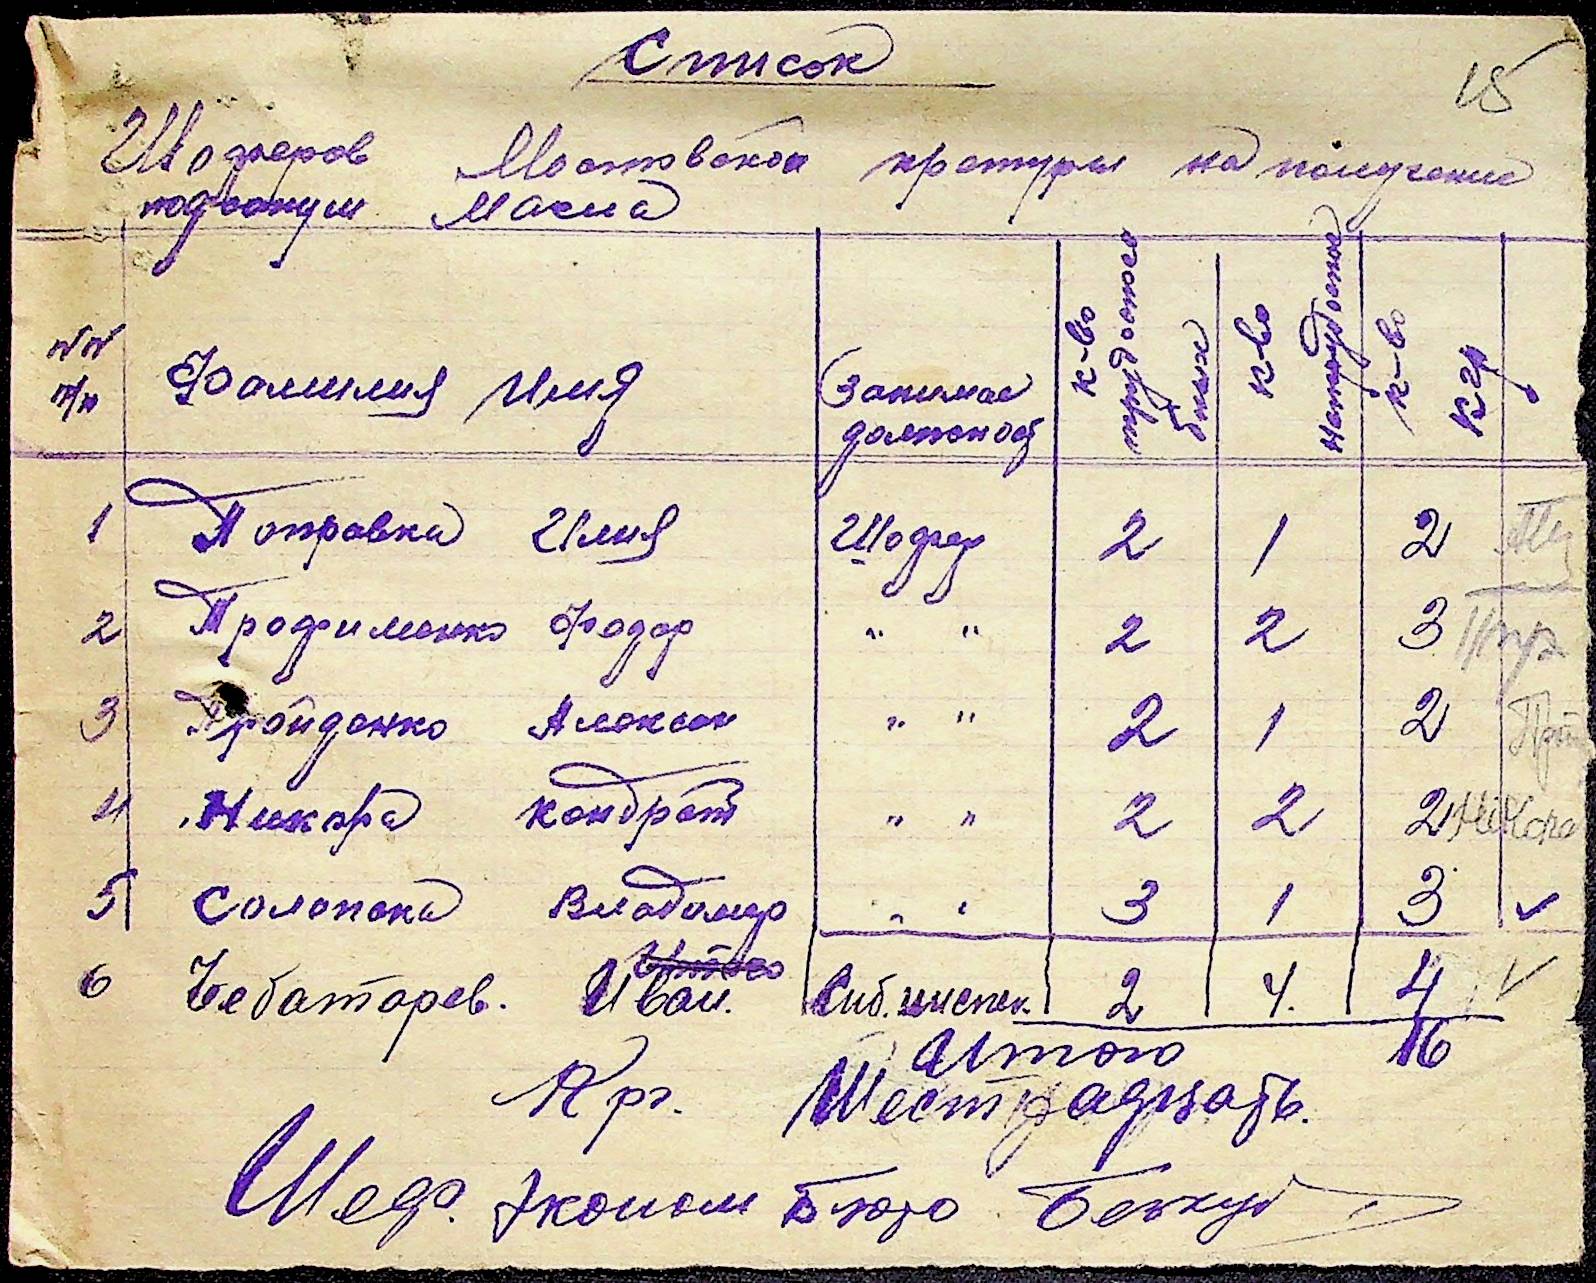 Список
15
Шоферов Мостовской кретуры на получение
подсолнум масла
№№ п/п Фамилия Имя Занимае должност к-во трудоспособных к-во нетрудоспос к-во кгр
1 Поправка Илия Шофер 2 1 2
2 Трофименко Фодор " " 2 2 3
3 Пройденко Алексеи " " 2 1 2
4 Никора Кондрат " " 2 2 2 Нікора
5 Солопека Владимер " " 3 1 3 ✓
Итого
6 Чеботарев. Иван. Сиб. инспек. 2 4. 4 ✓
Итого 16
Кгр. Шестнадцать.
Шеф. Эконом Бюро